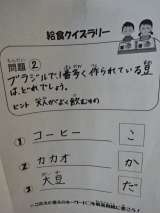 給食クイズラリー
もんだい
問題②
ブラジルで、1番多く作られている豆
は、どれでしょう。
ヒント 大人がよく飲むもの
1 コーヒー こ
2 カカオ か
3 大豆 だ